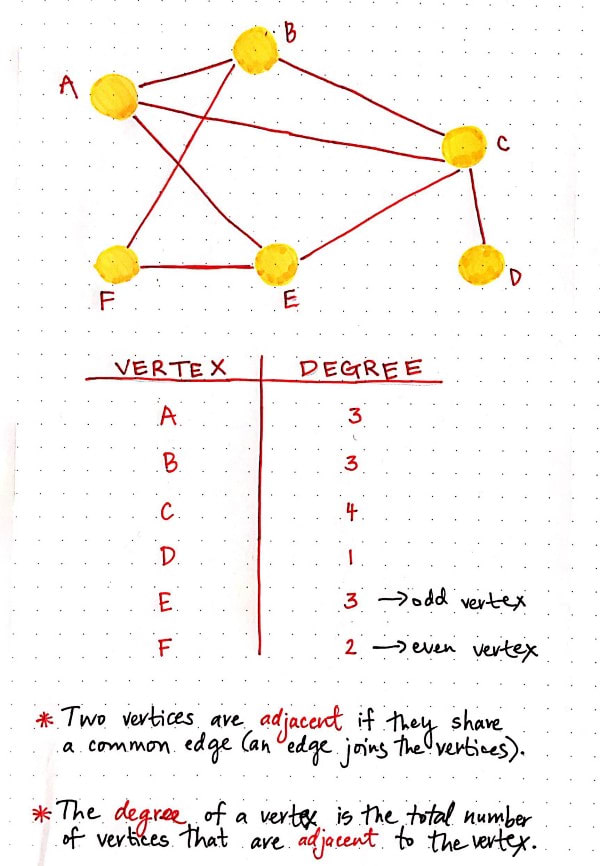 B
A
C
D
F
E
VERTEX DEGREE
A 3
B 3
C 4
D 1
E 3 →odd vertex
F 2 →even vertex
* Two vertices are adjacent if they share
a common edge (an edge joins the vertices).
* The degree of a vertex is the total number
of vertices that are adjacent to the vertex.